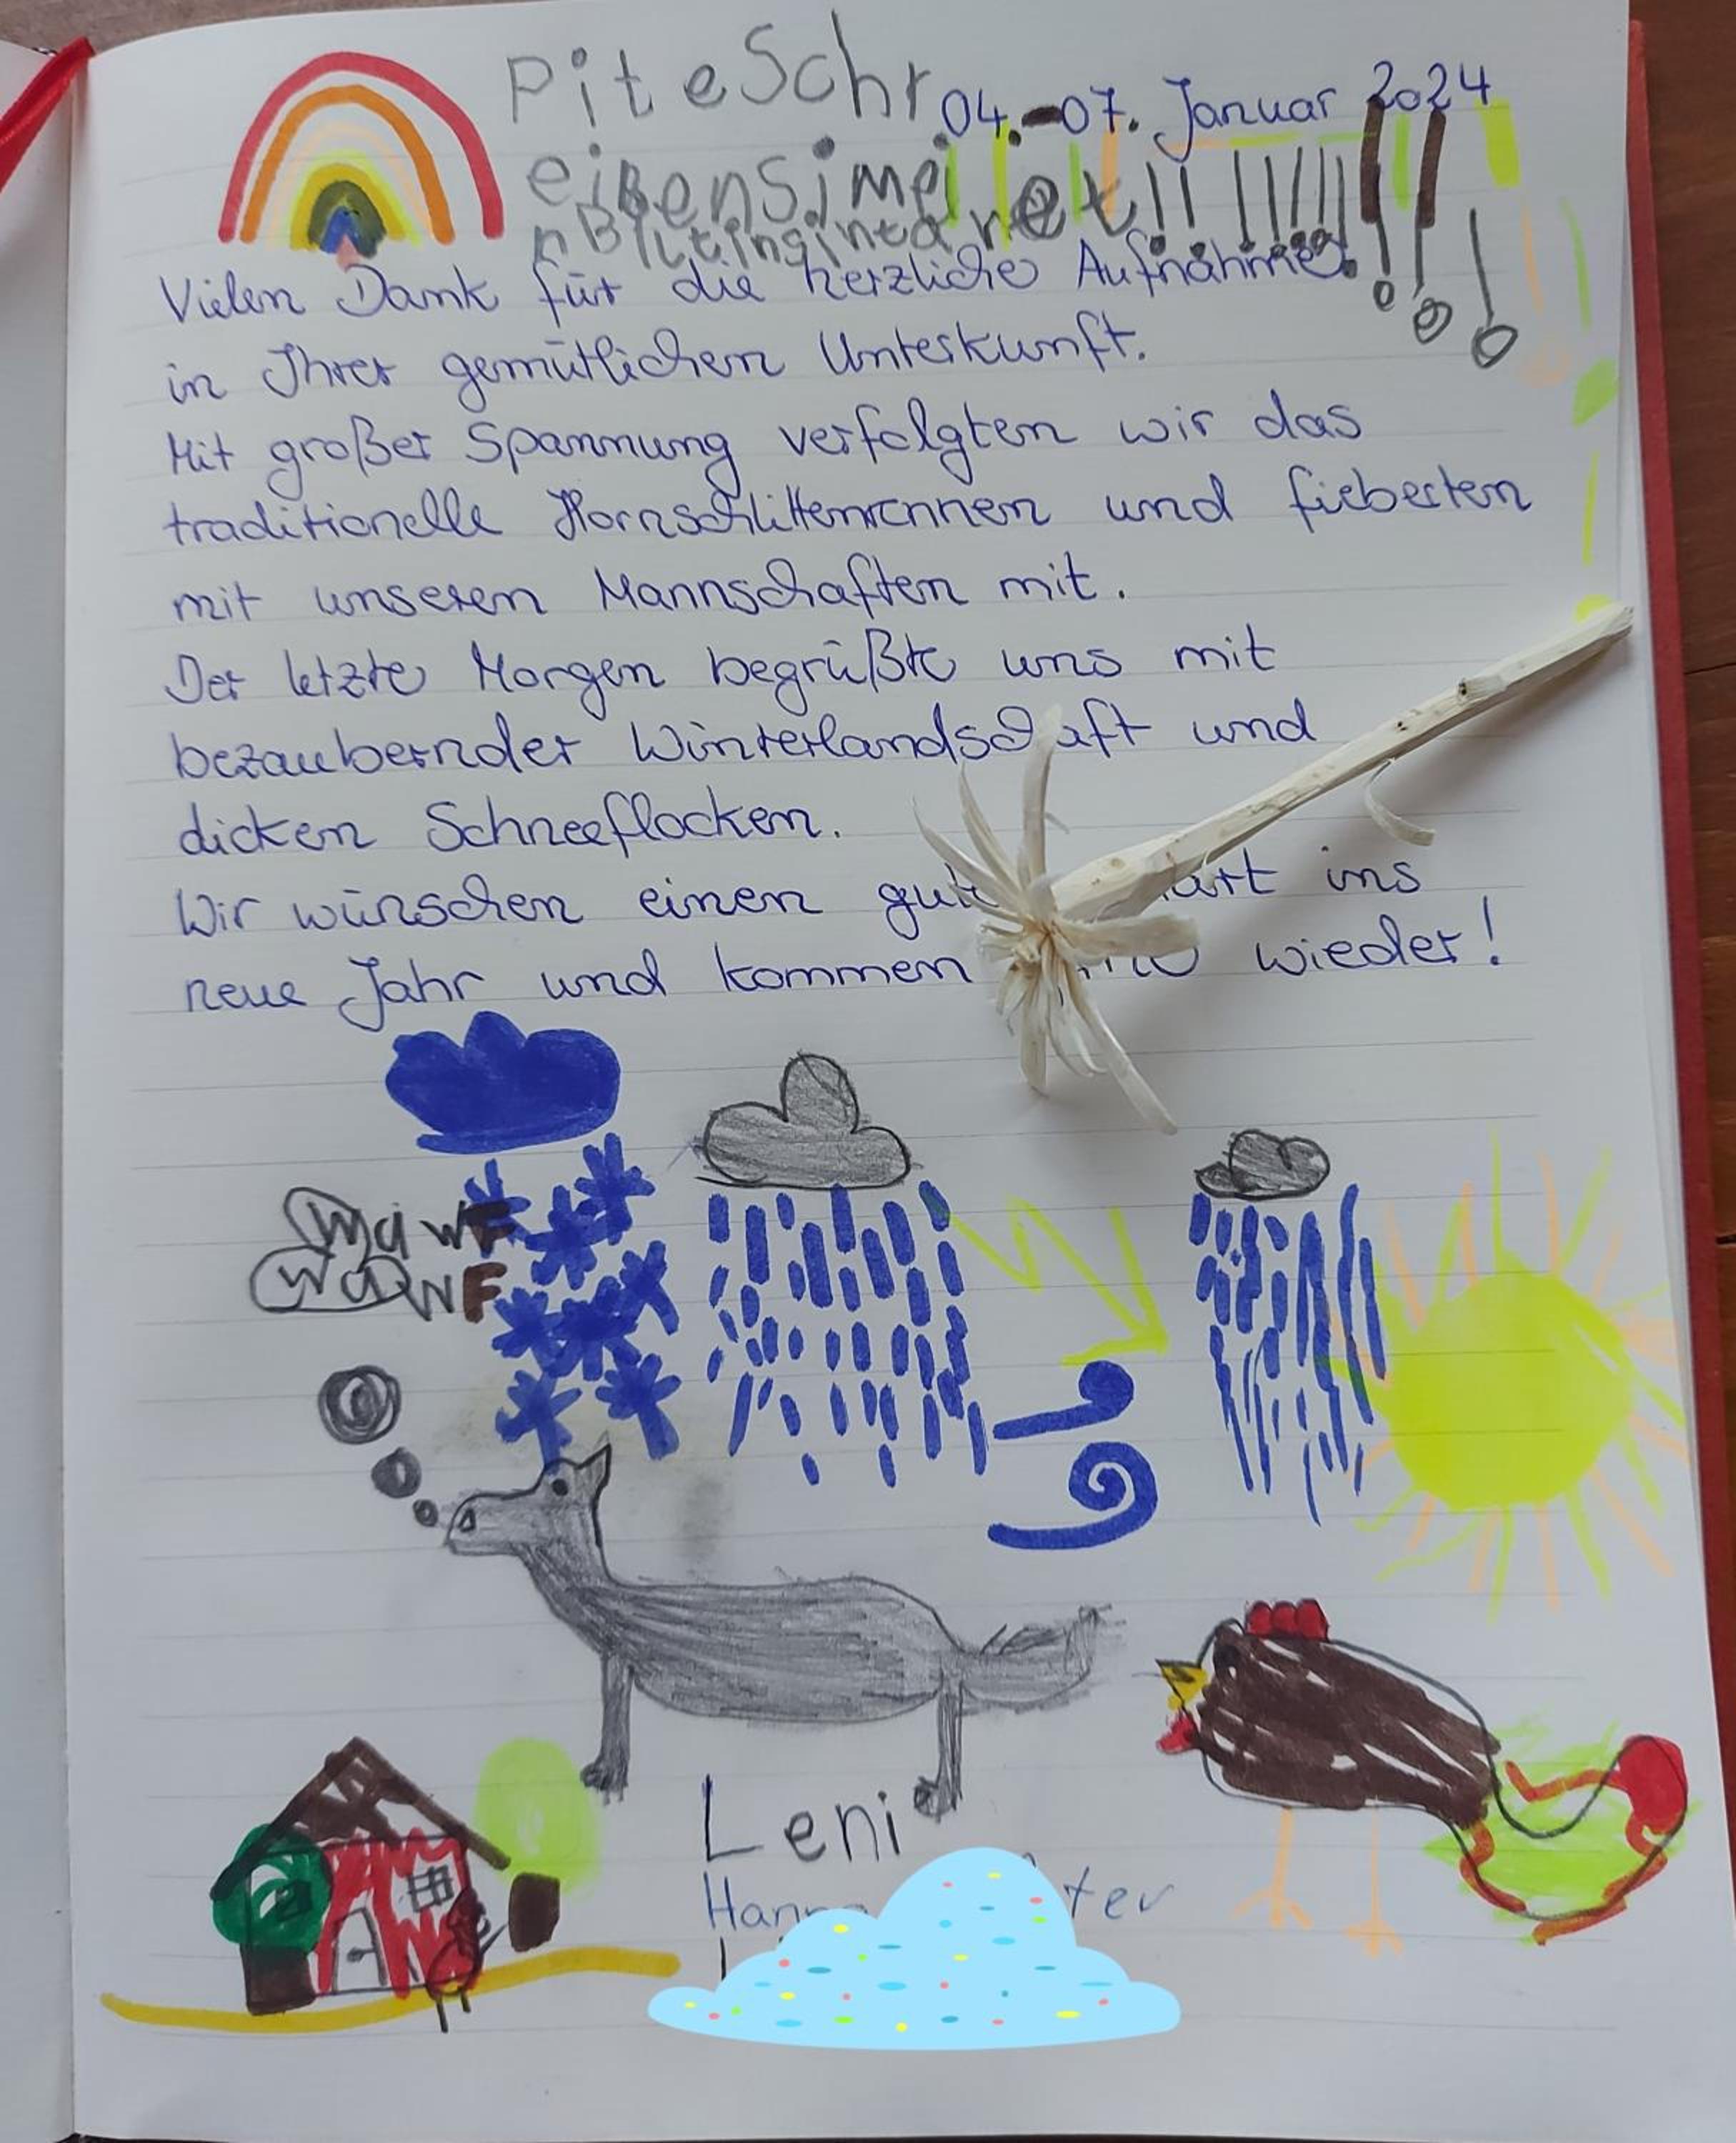 PiteSchr
04.-07. Januar 2024
eibensimei
nBiltinginta net!!!!!!!!!!!
Vielen Dank für die herzliche Aufnahme
in Ihrer gemütlichen Unterkunft.
Mit großer Spannung verfolgten wir das
traditionelle Hornschlittenrennen und fieberten
mit unseren Mannschaften mit.
Der letzte Morgen begrüßte uns mit
bezaubernder Winterlandschaft und
dicken Schneeflocken.
Wir wünschen einen ins
neue Jahr und kommen wieder!
WawF
WawF
Leni